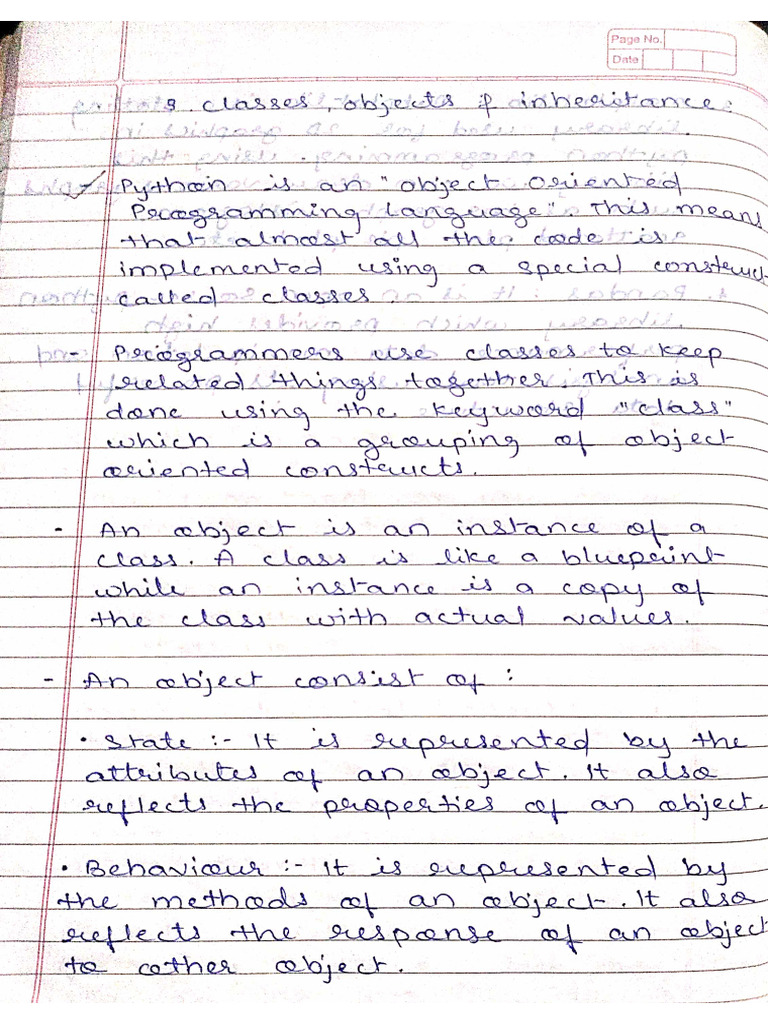 Page No.
Date
9. classes, objects & inheritance:
Python is an "object oriented
Programming language". This means
that almost all the code is
implemented using a special construct
called classes
- Programmers use classes to keep
related things together. This is
done using the keyword "class"
which is a grouping of object
oriented constructs.
- An object is an instance of a
class. A class is like a blueprint
while an instance is a copy of
the class with actual values.
- An object consist of :
• State :- It is represented by the
attributes of an object. It also
reflects the properties of an object.
• Behaviour :- It is represented by
the methods of an object. It also
reflects the response of an object
to other object.